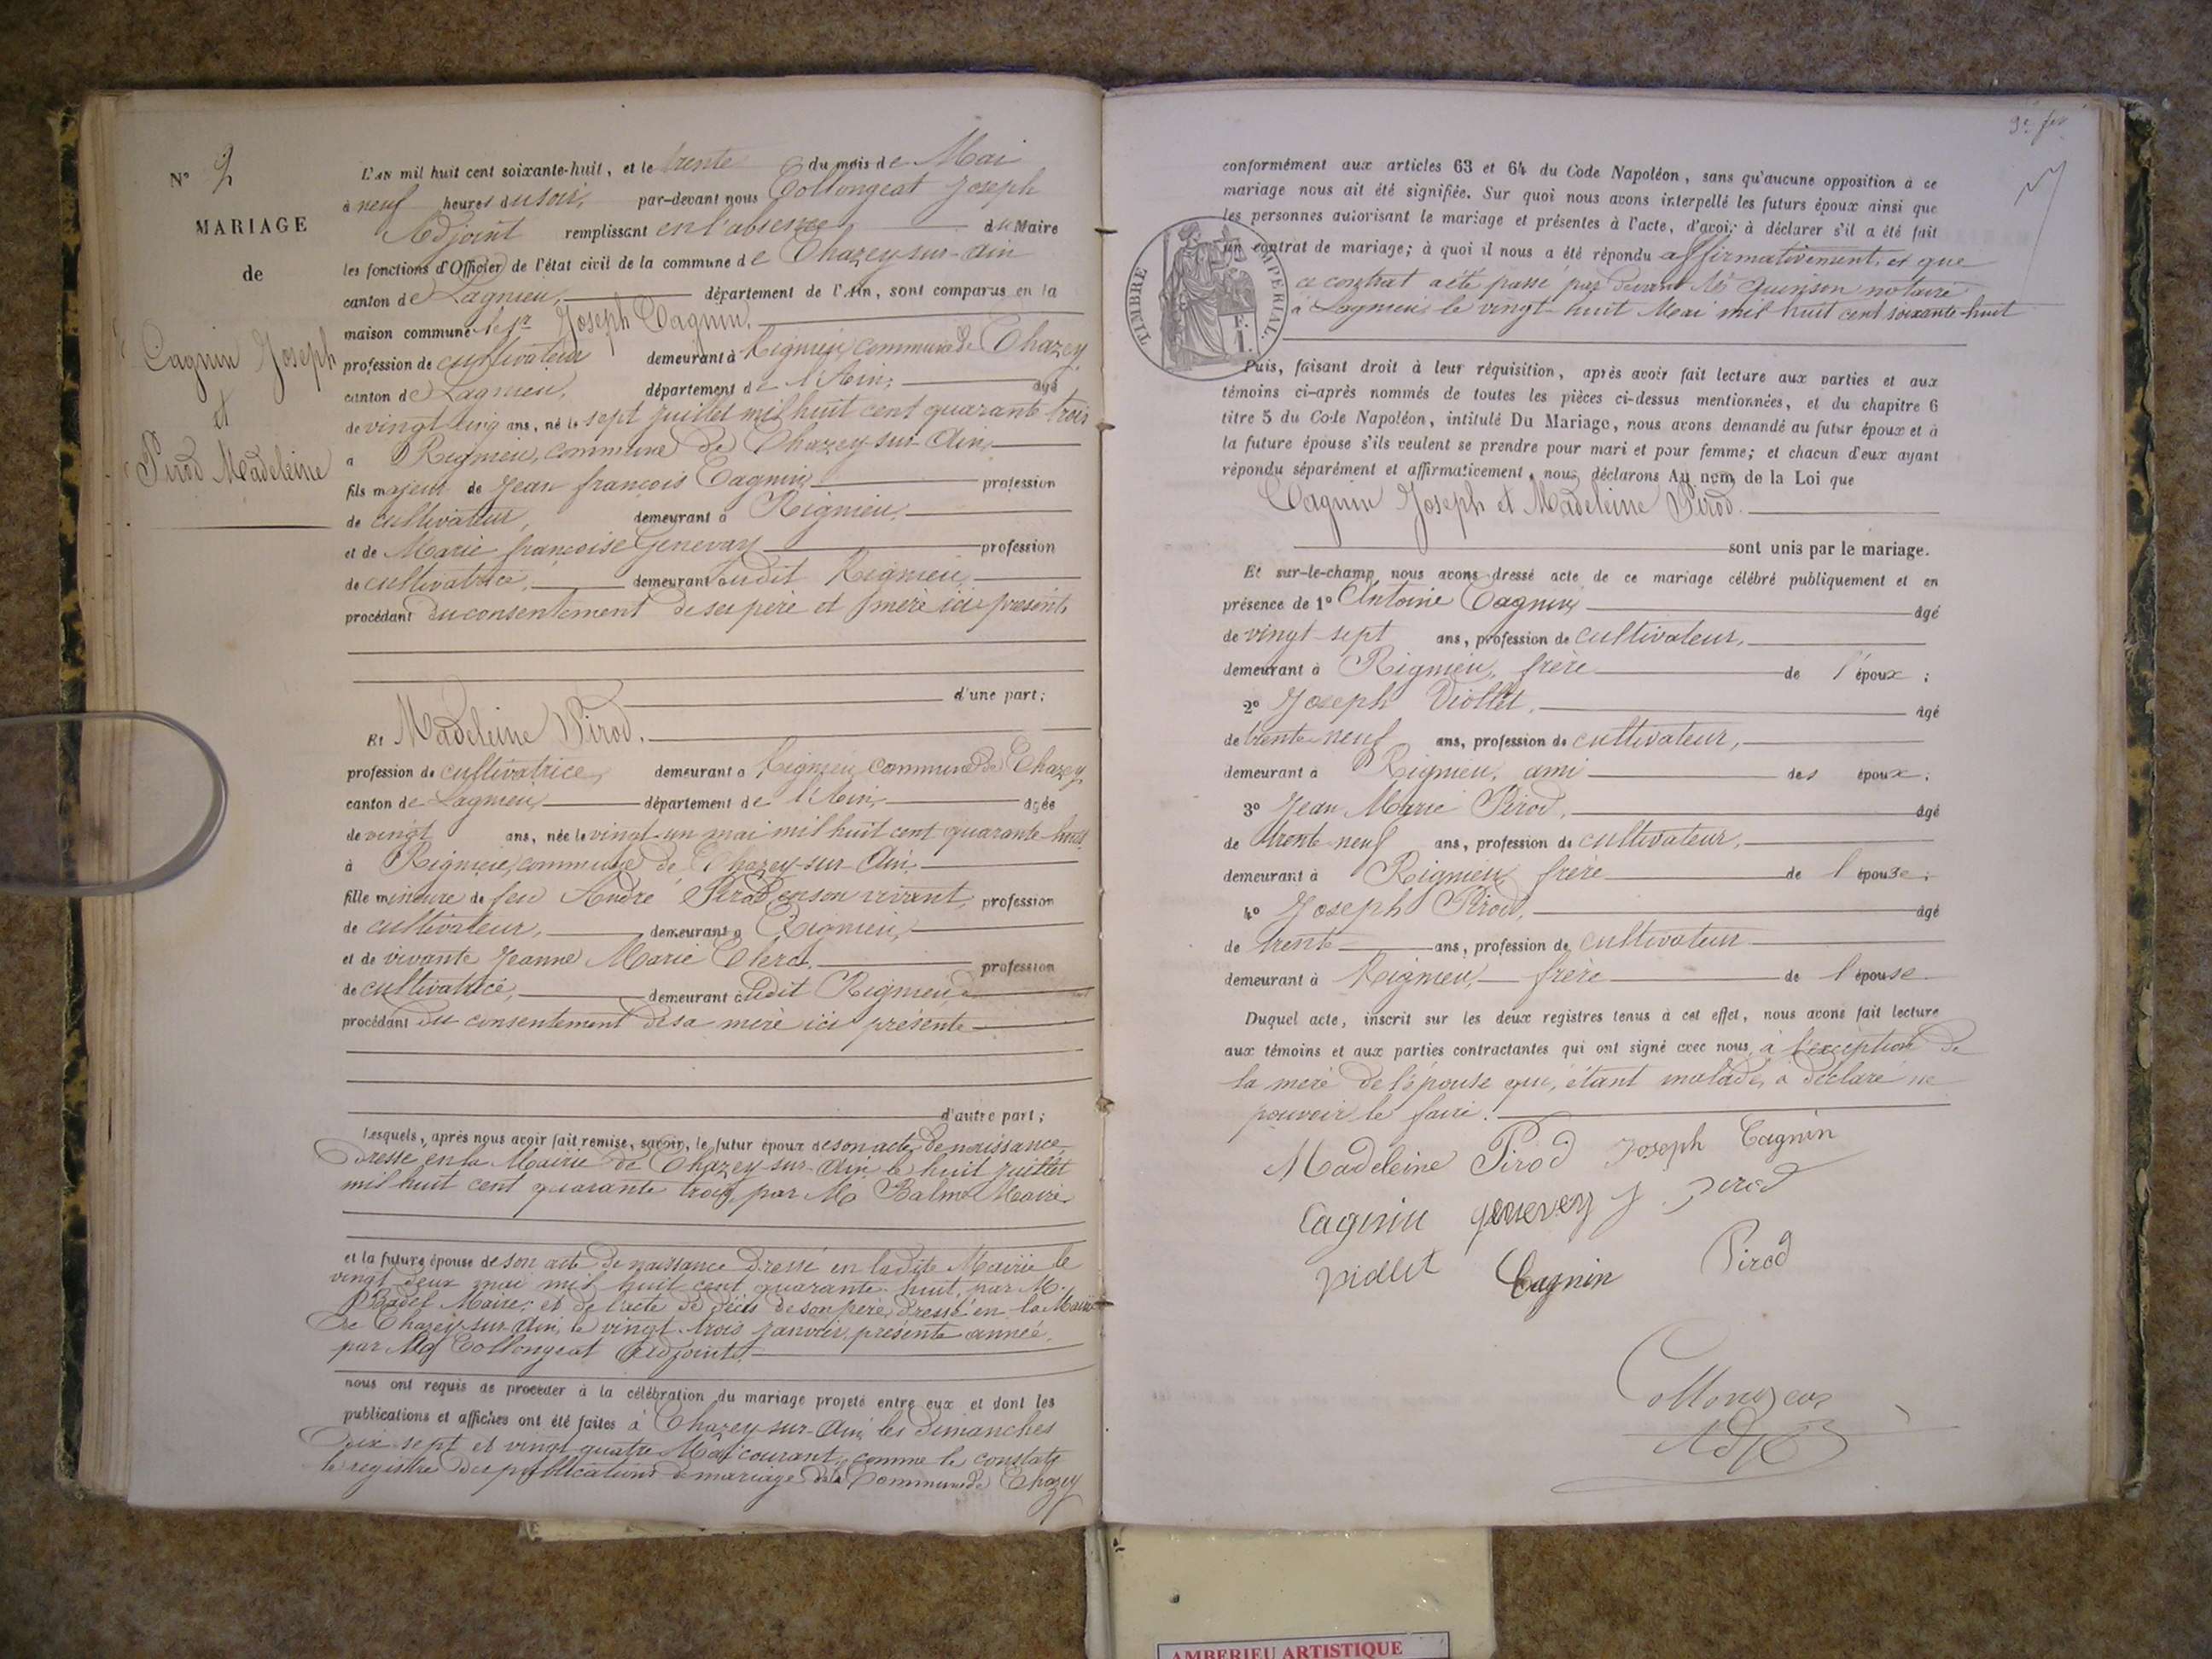 N° 2
MARIAGE
de
Cagnin Joseph
et
Pirod Madeleine
L'AN mil huit cent soixante-huit, et le trente du mois de Mai
à neuf heures du soir, par-devant nous Collongeat Joseph
Adjoint remplissant en l'absence du Maire
les fonctions d'Officier de l'état civil de la commune de Chazey-sur-Ain
canton de Lagnieu, département de l'Ain, sont comparus en la
maison commune le sr Joseph Cagnin,
profession de cultivateur demeurant à Rignieu, commune de Chazey
canton de Lagnieu, département de l'Ain, âgé
de vingt cinq ans, né le sept juillet mil huit cent quarante trois
à Rignieu, commune de Chazey-sur-Ain,
fils majeur de Jean françois Cagnin profession
de cultivateur, demeurant à Rignieu,
et de Marie françoise Genevay profession
de cultivatrice, demeurant audit Rignieu,
procédant du consentement de ses père et mère ici présents
d'une part;
Et Madeleine Pirod,
profession de cultivatrice, demeurant à Rignieu, commune de Chazey
canton de Lagnieu, département de l'Ain, âgée
de vingt ans, née le vingt-un mai mil huit cent quarante-huit
à Rignieu, commune de Chazey-sur-Ain,
fille mineure de feu André Pirod, en son vivant, profession
de cultivateur, demeurant à Rignieu,
et de vivante Jeanne Marie Clerc, profession
de cultivatrice, demeurant audit Rignieu,
procédant du consentement de sa mère ici présente
d'autre part;
Lesquels, après nous avoir fait remise, savoir, le futur époux de son acte de naissance
dressé en la Mairie de Chazey-sur-Ain, le huit juillet
mil huit cent quarante trois, par M. Balme Maire
et la future épouse de son acte de naissance dressé en ladite Mairie le
vingt-deux mai mil huit cent quarante-huit, par M.
Badel Maire; et de l'acte de décès de son père, dressé en la Mairie
de Chazey-sur-Ain, le vingt-trois janvier, présente année,
par M. Collongeat Adjoint
nous ont requis de procéder à la célébration du mariage projeté entre eux et dont les
publications et affiches ont été faites à Chazey-sur-Ain, les dimanches
dix-sept et vingt quatre Mai courant, comme le constate
le registre des publications de mariage de la Commune de Chazey
conformément aux articles 63 et 64 du Code Napoléon, sans qu'aucune opposition à ce
mariage nous ait été signifiée. Sur quoi nous avons interpellé les futurs époux ainsi que
les personnes autorisant le mariage et présentes à l'acte, d'avoir à déclarer s'il a été fait
un contrat de mariage; à quoi il nous a été répondu affirmativement, et que
ce contrat a été passé par devant Me Quinson notaire
à Lagnieu, le vingt-huit Mai mil huit cent soixante-huit
TIMBRE IMPÉRIAL.
1 F.
Puis, faisant droit à leur réquisition, après avoir fait lecture aux parties et aux
témoins ci-après nommés de toutes les pièces ci-dessus mentionnées, et du chapitre 6
titre 5 du Code Napoléon, intitulé Du Mariage, nous avons demandé au futur époux et à
la future épouse s'ils veulent se prendre pour mari et pour femme; et chacun d'eux ayant
répondu séparément et affirmativement, nous déclarons Au nom de la Loi que
Cagnin Joseph et Madeleine Pirod.
sont unis par le mariage.
Et sur-le-champ nous avons dressé acte de ce mariage célébré publiquement et en
présence de 1° Antoine Cagnin âgé
de vingt-sept ans, profession de cultivateur,
demeurant à Rignieu, frère de l'époux;
2° Joseph Viollet, âgé
de trente-neuf ans, profession de cultivateur,
demeurant à Rignieu, ami des époux;
3° Jean Marie Pirod, âgé
de trente neuf ans, profession de cultivateur,
demeurant à Rignieu, frère de l'épouse;
4° Joseph Pirod, âgé
de trente ans, profession de cultivateur
demeurant à Rignieu, frère de l'épouse
Duquel acte, inscrit sur les deux registres tenus à cet effet, nous avons fait lecture
aux témoins et aux parties contractantes qui ont signé avec nous, à l'exception de
la mère de l'épouse qui, étant malade, a déclaré ne
pouvoir le faire.
Madeleine Pirod Joseph Cagnin
Cagnin genevey J. Pirod
Viollet Cagnin Pirod
Collongeat
Adjt
AMBERIEU ARTISTIQUE